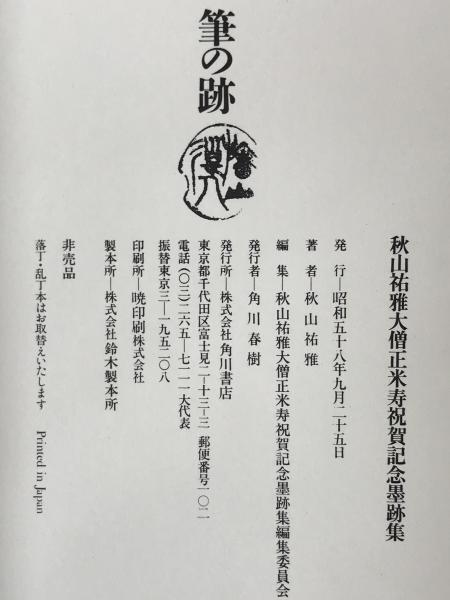 筆の跡
秋山祐雅大僧正米寿祝賀記念墨跡集
発行—昭和五十八年九月二十五日
著者—秋山祐雅
編集—秋山祐雅大僧正米寿祝賀記念墨跡集編集委員会
発行者—角川春樹
発行所—株式会社角川書店
東京都千代田区富士見二—十三—三 郵便番号一〇二
電話(〇三)二六五—七一一一大代表
振替東京三—一九五二〇八
印刷所—暁印刷株式会社
製本所—株式会社鈴木製本所
非売品
落丁・乱丁本はお取替えいたします Printed in Japan